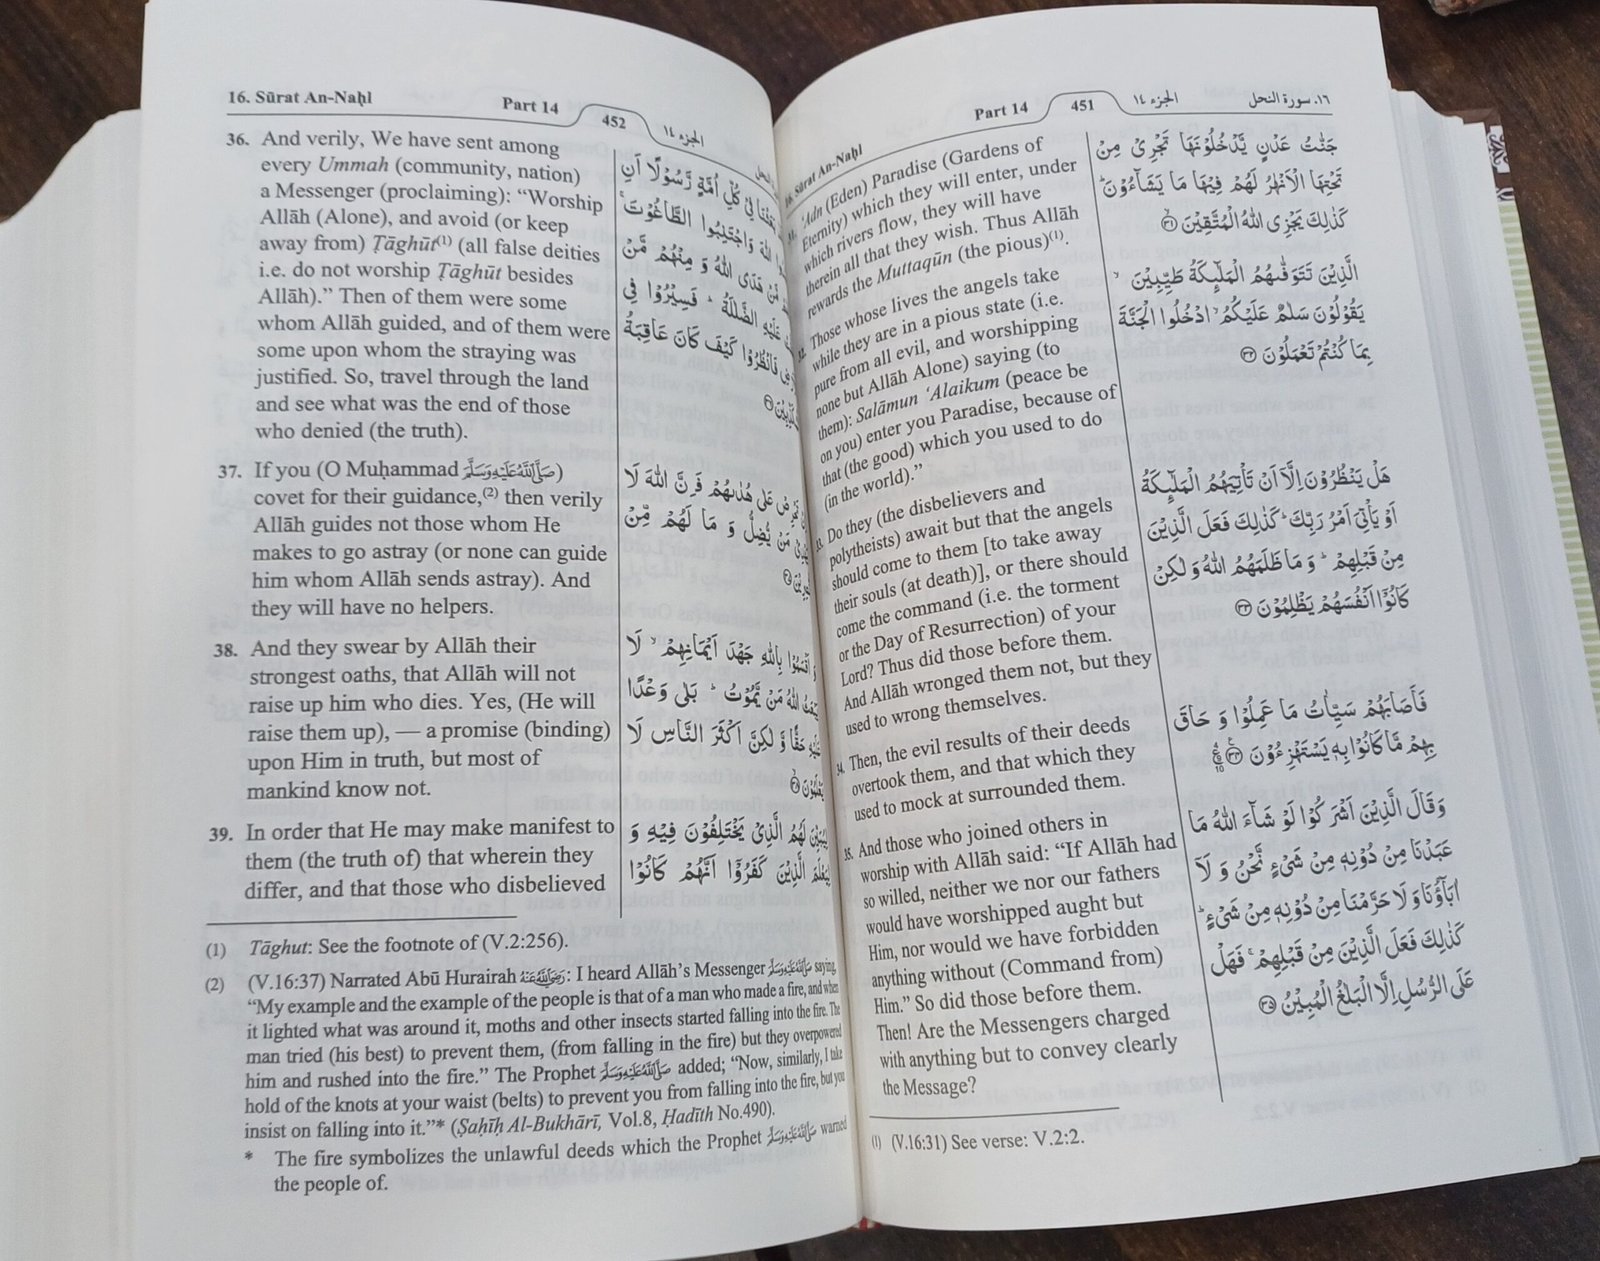 16. Sūrat An-Naḥl Part 14 451 الجزء ١٤ ١٦. سورة النحل
31. ‘Adn (Eden) Paradise (Gardens of
Eternity) which they will enter, under
which rivers flow, they will have
therein all that they wish. Thus Allāh
rewards the Muttaqūn (the pious)(1).
جَنّٰتُ عَدْنٍ يَّدْخُلُوْنَهَا تَجْرِيْ مِنْ
تَحْتِهَا الْاَنْهٰرُ لَهُمْ فِيْهَا مَا يَشَآءُوْنَ ؕ
كَذٰلِكَ يَجْزِى اللّٰهُ الْمُتَّقِيْنَ ۙ﴿٣١﴾
32. Those whose lives the angels take
while they are in a pious state (i.e.
pure from all evil, and worshipping
none but Allāh Alone) saying (to
them): Salāmun ‘Alaikum (peace be
on you) enter you Paradise, because of
that (the good) which you used to do
(in the world).”
الَّذِيْنَ تَتَوَفّٰىهُمُ الْمَلٰٓئِكَةُ طَيِّبِيْنَ ۙ
يَقُوْلُوْنَ سَلٰمٌ عَلَيْكُمُ ۙ ادْخُلُوا الْجَنَّةَ
بِمَا كُنْتُمْ تَعْمَلُوْنَ ﴿٣٢﴾
33. Do they (the disbelievers and
polytheists) await but that the angels
should come to them [to take away
their souls (at death)], or there should
come the command (i.e. the torment
or the Day of Resurrection) of your
Lord? Thus did those before them.
And Allāh wronged them not, but they
used to wrong themselves.
هَلْ يَنْظُرُوْنَ اِلَّآ اَنْ تَاْتِيَهُمُ الْمَلٰٓئِكَةُ
اَوْ يَاْتِيَ اَمْرُ رَبِّكَ ؕ كَذٰلِكَ فَعَلَ الَّذِيْنَ
مِنْ قَبْلِهِمْ ؕ وَ مَا ظَلَمَهُمُ اللّٰهُ وَ لٰكِنْ
كَانُوْٓا اَنْفُسَهُمْ يَظْلِمُوْنَ ﴿٣٣﴾
34. Then, the evil results of their deeds
overtook them, and that which they
used to mock at surrounded them.
فَاَصَابَهُمْ سَيِّاٰتُ مَا عَمِلُوْا وَ حَاقَ
بِهِمْ مَّا كَانُوْا بِهٖ يَسْتَهْزِءُوْنَ ﴿٣٤﴾
35. And those who joined others in
worship with Allāh said: “If Allāh had
so willed, neither we nor our fathers
would have worshipped aught but
Him, nor would we have forbidden
anything without (Command from)
Him.” So did those before them.
Then! Are the Messengers charged
with anything but to convey clearly
the Message?
وَقَالَ الَّذِيْنَ اَشْرَكُوْا لَوْ شَآءَ اللّٰهُ مَا
عَبَدْنَا مِنْ دُوْنِهٖ مِنْ شَيْءٍ نَّحْنُ وَ لَآ
اٰبَآؤُنَا وَ لَا حَرَّمْنَا مِنْ دُوْنِهٖ مِنْ شَيْءٍ ؕ
كَذٰلِكَ فَعَلَ الَّذِيْنَ مِنْ قَبْلِهِمْ ۚ فَهَلْ
عَلَى الرُّسُلِ اِلَّا الْبَلٰغُ الْمُبِيْنُ ﴿٣٥﴾
(1) (V.16:31) See verse: V.2:2.
16. Sūrat An-Naḥl Part 14 452 الجزء ١٤
36. And verily, We have sent among
every Ummah (community, nation)
a Messenger (proclaiming): “Worship
Allāh (Alone), and avoid (or keep
away from) Ṭāghūt(1) (all false deities
i.e. do not worship Ṭāghūt besides
Allāh).” Then of them were some
whom Allāh guided, and of them were
some upon whom the straying was
justified. So, travel through the land
and see what was the end of those
who denied (the truth).
فِيْ كُلِّ اُمَّةٍ رَّسُوْلًا اَنِ
اللّٰهَ وَ اجْتَنِبُوا الطَّاغُوْتَ ۚ
مَّنْ هَدَى اللّٰهُ وَ مِنْهُمْ مَّنْ
عَلَيْهِ الضَّلٰلَةُ ؕ فَسِيْرُوْا فِي
فَانْظُرُوْا كَيْفَ كَانَ عَاقِبَةُ
37. If you (O Muḥammad صَلَّى اللهُ عَلَيْهِ وَسَلَّمَ)
covet for their guidance,(2) then verily
Allāh guides not those whom He
makes to go astray (or none can guide
him whom Allāh sends astray). And
they will have no helpers.
عَلٰى هُدٰىهُمْ فَاِنَّ اللّٰهَ لَا
مَنْ يُّضِلُّ وَ مَا لَهُمْ مِّنْ
38. And they swear by Allāh their
strongest oaths, that Allāh will not
raise up him who dies. Yes, (He will
raise them up), — a promise (binding)
upon Him in truth, but most of
mankind know not.
وَ اَقْسَمُوْا بِاللّٰهِ جَهْدَ اَيْمَانِهِمْ ۙ لَا
يَبْعَثُ اللّٰهُ مَنْ يَّمُوْتُ ؕ بَلٰى وَعْدًا
عَلَيْهِ حَقًّا وَّ لٰكِنَّ اَكْثَرَ النَّاسِ لَا
يَعْلَمُوْنَ
39. In order that He may make manifest to
them (the truth of) that wherein they
differ, and that those who disbelieved
لِيُبَيِّنَ لَهُمُ الَّذِيْ يَخْتَلِفُوْنَ فِيْهِ وَ
لِيَعْلَمَ الَّذِيْنَ كَفَرُوْٓا اَنَّهُمْ كَانُوْا
(1) Tāghut: See the footnote of (V.2:256).
(2) (V.16:37) Narrated Abū Hurairah رَضِيَ اللهُ عَنْهُ: I heard Allāh’s Messenger صَلَّى اللهُ عَلَيْهِ وَسَلَّمَ saying,
“My example and the example of the people is that of a man who made a fire, and when
it lighted what was around it, moths and other insects started falling into the fire. The
man tried (his best) to prevent them, (from falling in the fire) but they overpowered
him and rushed into the fire.” The Prophet صَلَّى اللهُ عَلَيْهِ وَسَلَّمَ added; “Now, similarly, I take
hold of the knots at your waist (belts) to prevent you from falling into the fire, but you
insist on falling into it.”* (Ṣaḥīḥ Al-Bukhārī, Vol.8, Ḥadīth No.490).
* The fire symbolizes the unlawful deeds which the Prophet صَلَّى اللهُ عَلَيْهِ وَسَلَّمَ warned
the people of.